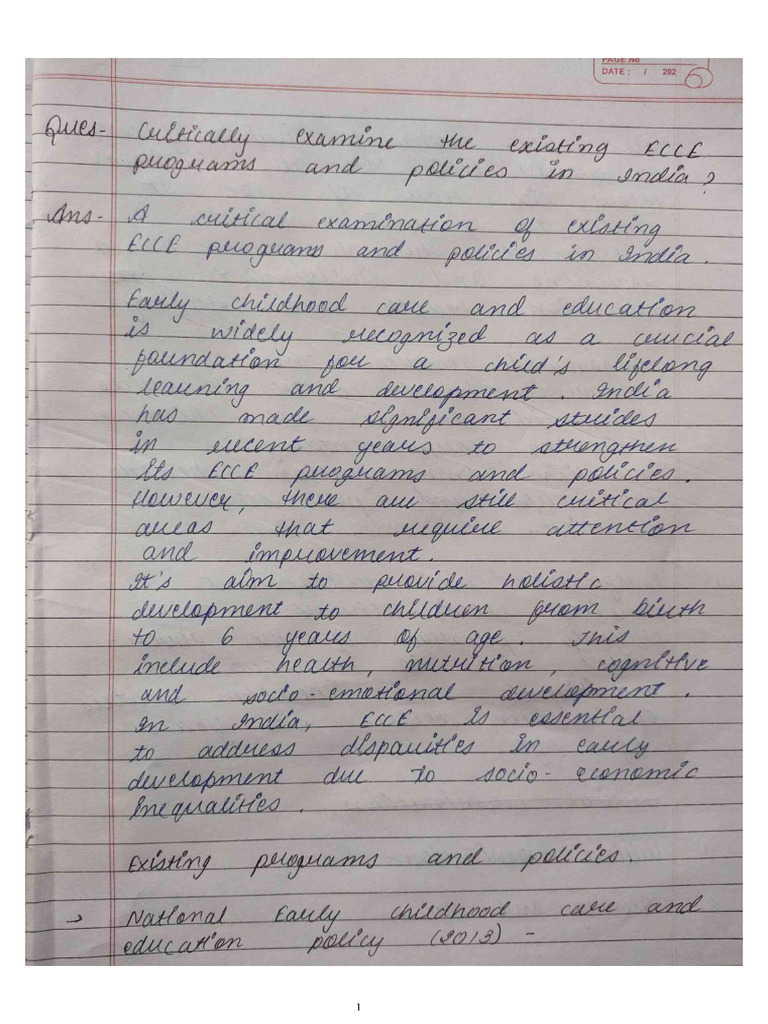 PAGE No
DATE : / 202 5
Ques- Critically examine the existing ECCE
programs and policies in India?
Ans- A critical examination of existing
ECCE programs and policies in India.
Early childhood care and education
is widely recognized as a crucial
foundation for a child's lifelong
learning and development. India
has made significant strides
in recent years to strengthen
Its ECCE programs and policies.
However, there are still critical
areas that require attention
and improvement.
It's aim to provide holistic
development to children from birth
to 6 years of age. This
include health, nutrition, cognitive
and socio-emotional development.
In India, ECCE is essential
to address disparities in early
development due to socio-economic
Inequalities.
Existing programs and policies.
→ National Early childhood care and
education policy (2013) -
1